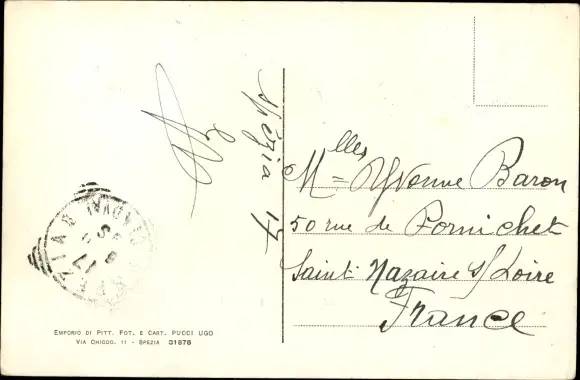 Spezia
le 17
Mlles Yvonne Baron
50 rue de Pornichet
Saint-Nazaire s/ Loire
France
EMPORIO DI PITT. FOT. E CART. PUCCI UGO
VIA CHIODO, 11 - SPEZIA 31878